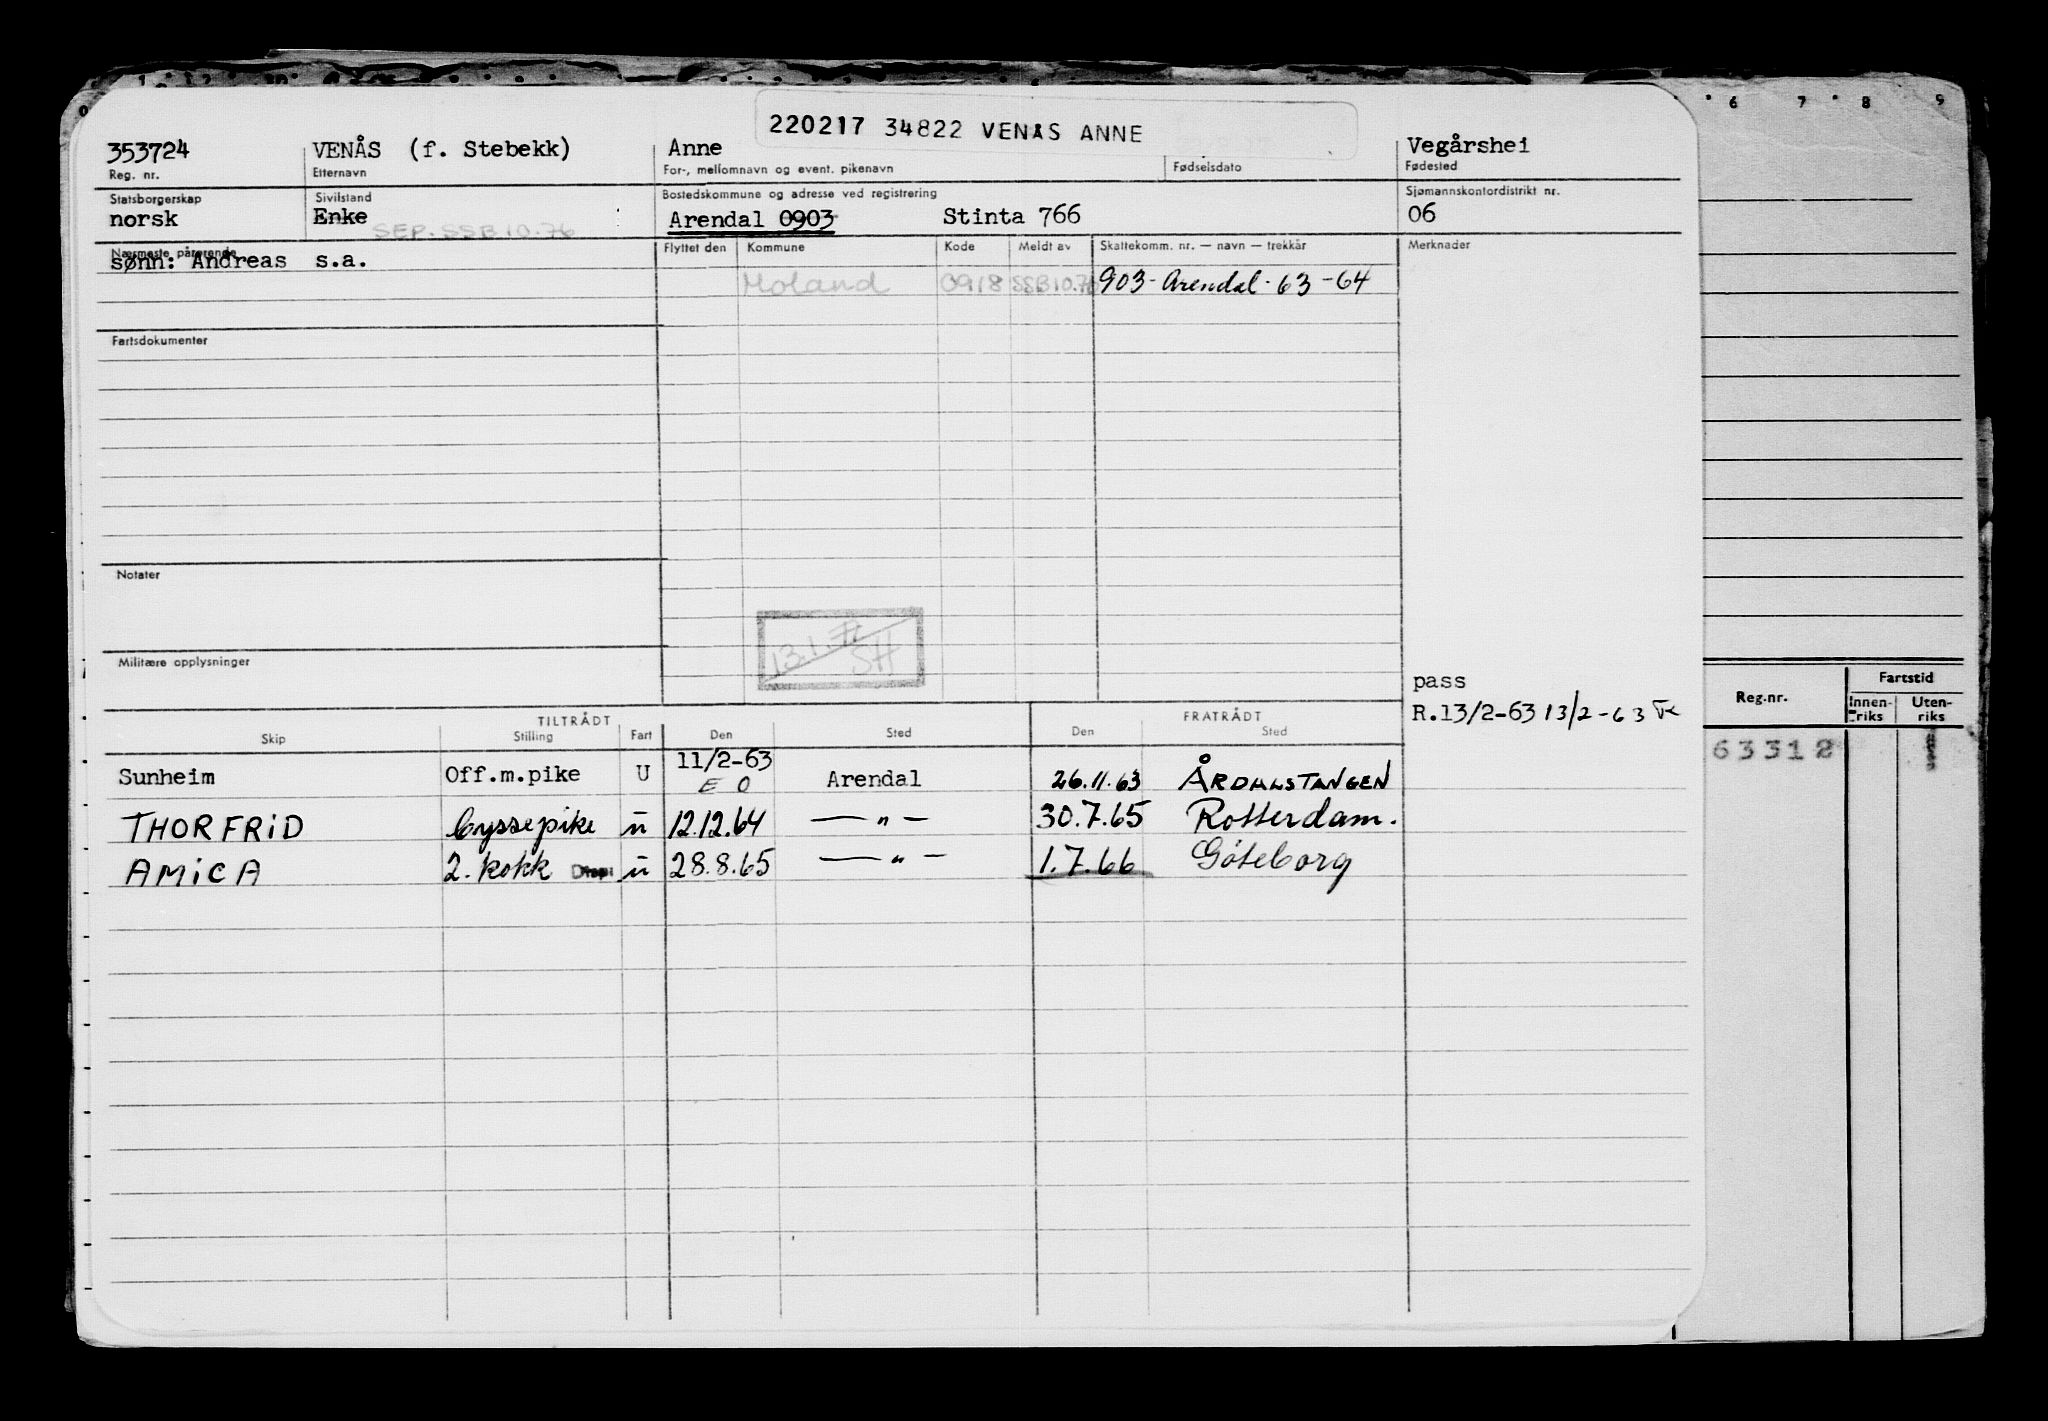 220217 34822 VENÅS ANNE
353724 VENÅS (f. Stebekk) Anne Vegårshei
Reg. nr. Etternavn For-, mellomnavn og event. pikenavn Fødselsdato Fødested
Statsborgerskap Sivilstand Bostedskommune og adresse ved registrering Sjømannskontordistrikt nr.
norsk Enke Arendal 0903 Stinta 766 06
SEP. SSB 10.76
Nærmeste pårørende Flyttet den Kommune Kode Meldt av Skattekomm. nr. — navn — trekkår Merknader
sønn: Andreas s.a.
Moland 0918 SSB 10.76 903 - Arendal - 63 - 64
Fartsdokumenter
Notater
13.1.77 SH
Militære opplysninger
pass
R.13/2-63 13/2-63
TILTRÅDT FRATRÅDT
Skip Stilling Fart Den Sted Den Sted
Sunheim Off.m.pike U 11/2-63 Arendal 26.11.63 ÅRDALSTANGEN
E O
THORFRID byssepike u 12.12.64 — " — 30.7.65 Rotterdam.
AMICA 2. kokk u 28.8.65 — " — 1.7.66 Göteborg
6 7 8 9
Reg.nr. Fartstid
Innen-riks Uten-riks
63312